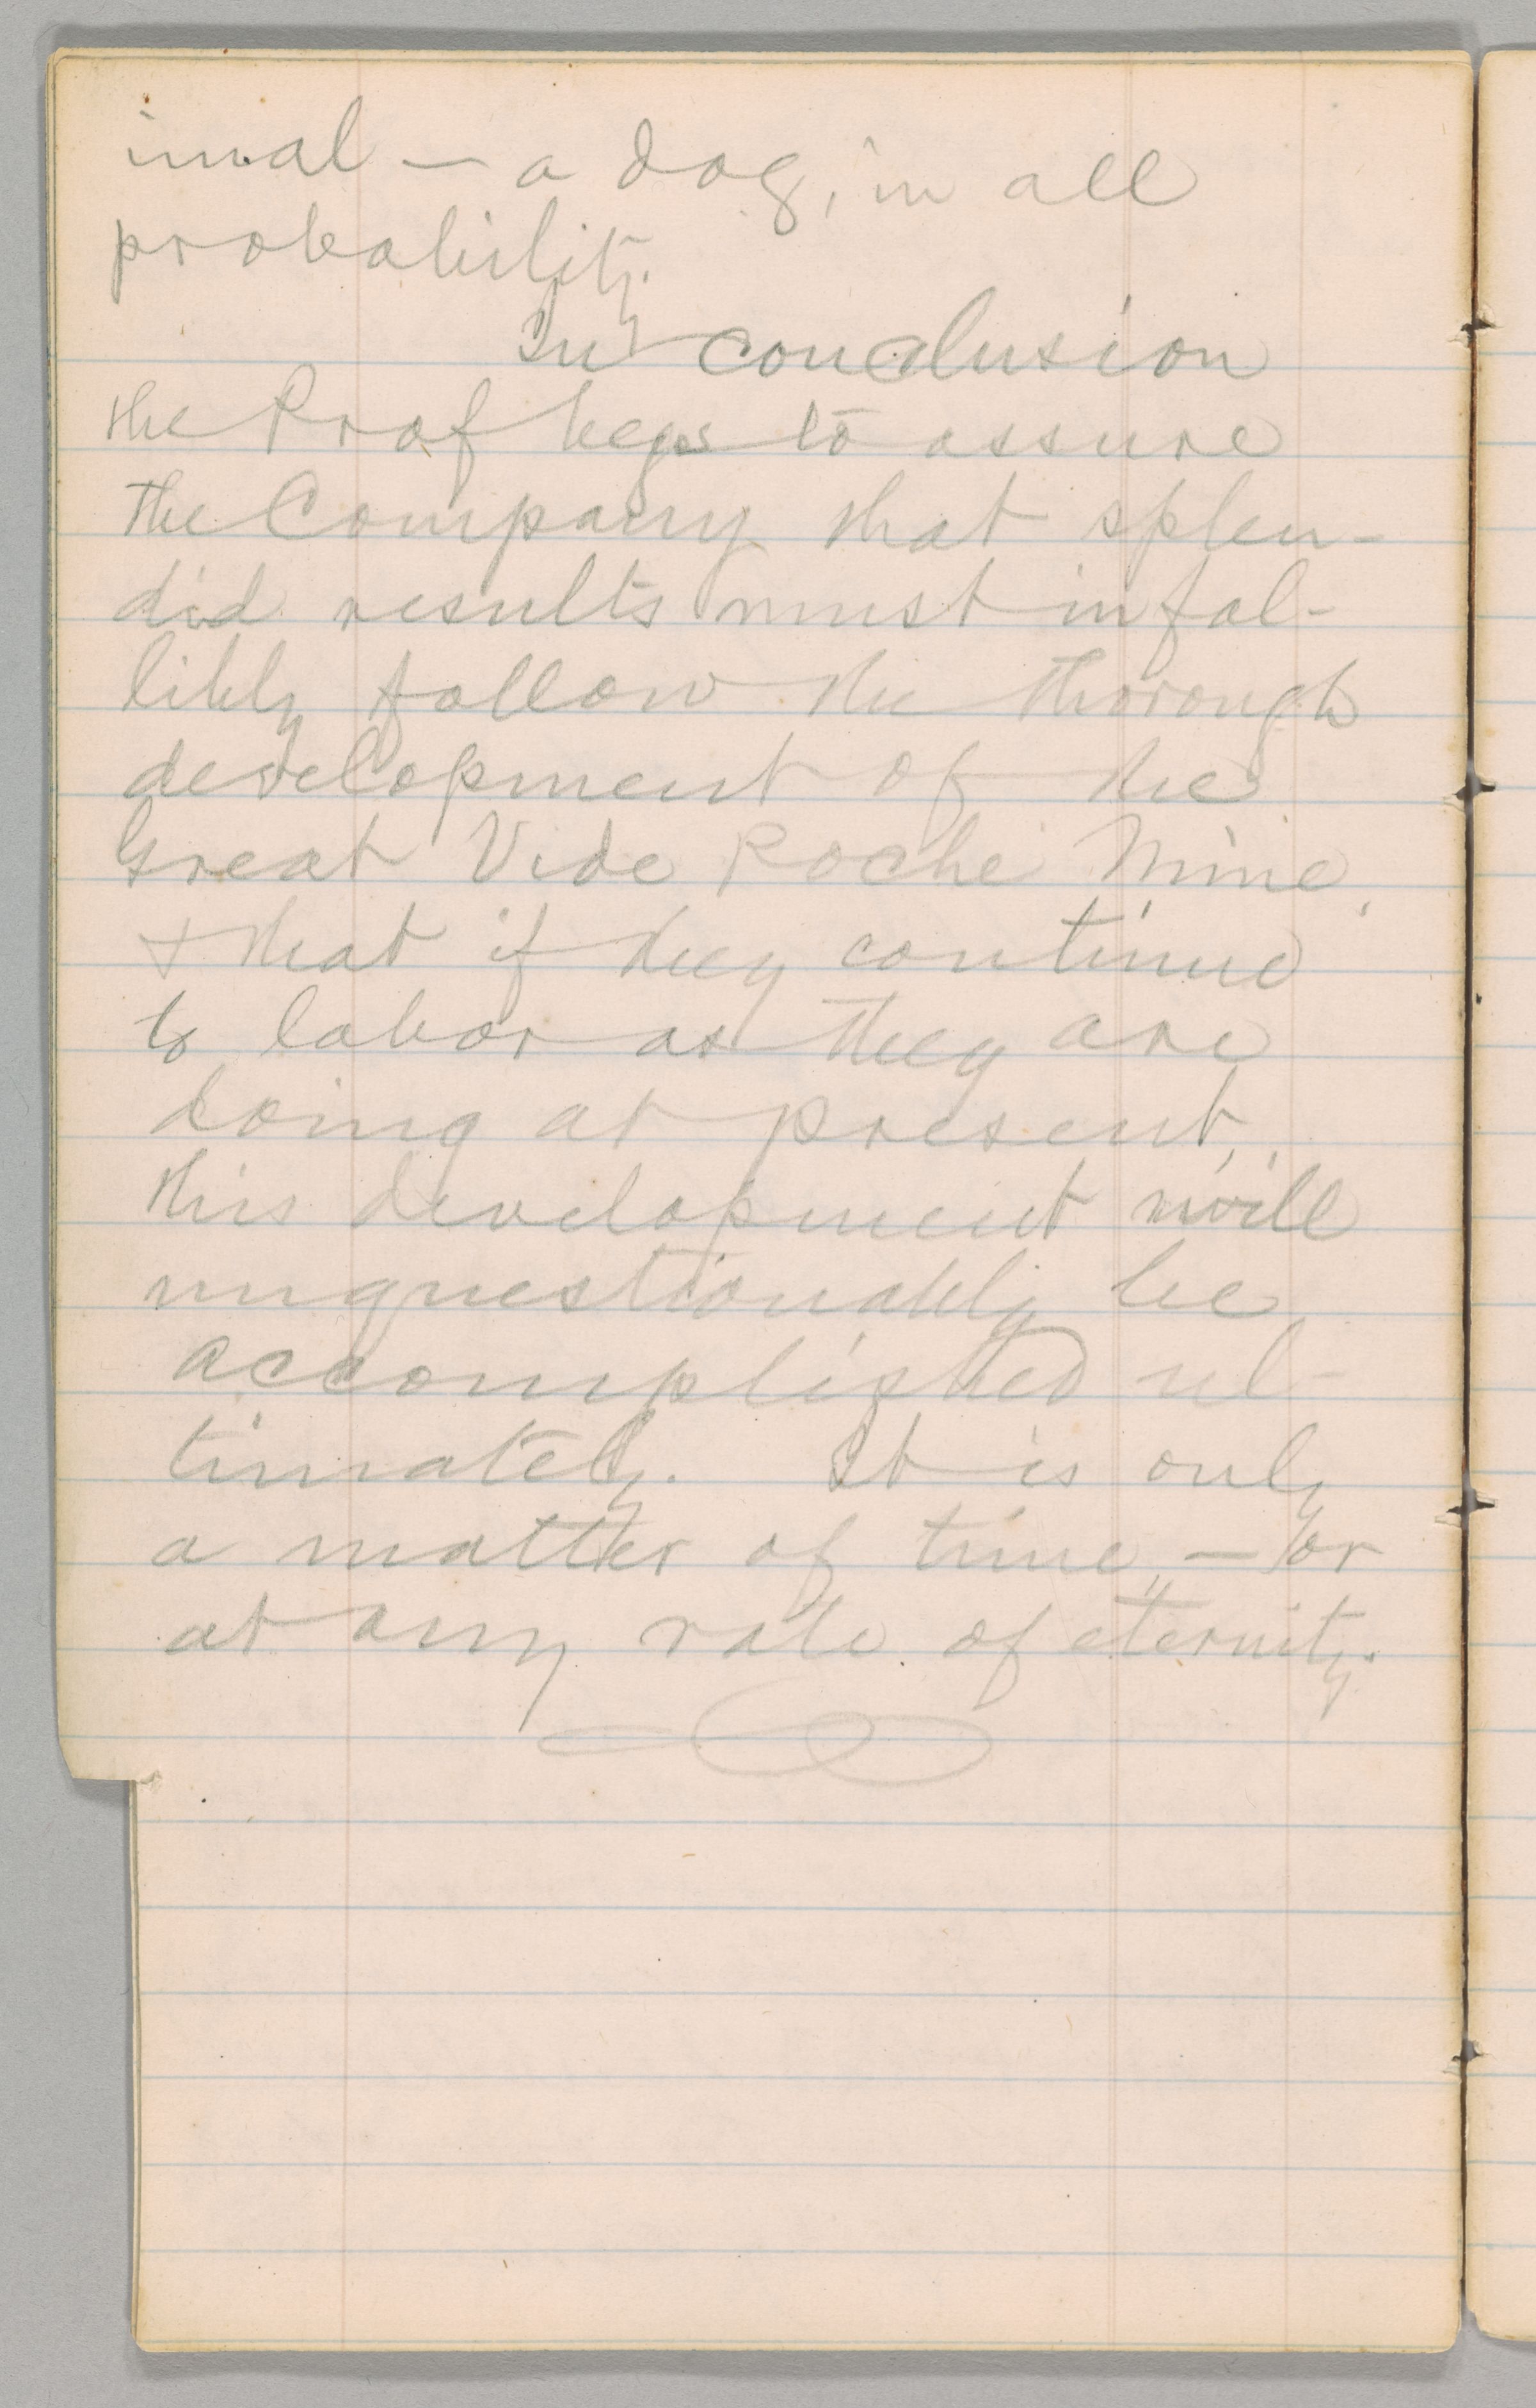 imal — a dog, in all
probability.
In conclusion
the Prof begs to assure
the Company that splen-
did results must infal-
libly follow the thorough
development of the
Great Vide Poche Mine,
& that if they continue
to labor as they are
doing at present,
this development will
unquestionably be
accomplished ul-
timately. It is only
a matter of time, — or
at any rate of eternity.